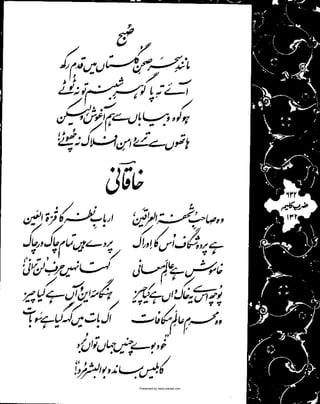 صبح
مانندِ سحر صحنِ گلستاں میں قدم رکھ
آئے تہِ پا گوہرِ شبنم تو نہ ٹوٹے
ہو کوہ و بیاباں سے ہم آغوش و لیکن
ہاتھوں سے ترے دامنِ افلاک نہ چھوٹے!
خاقانی
وہ صاحبِ تحفۃ العراقین، اربابِ نظر کا قرۃ العین
ہے پردہ شگاف اُس کا ادراک پردے ہیں تمام چاک در چاک
خاموش ہے عالمِ معانی کہتا نہیں حرفِ لن ترانی!
پوچھ اس سے یہ خاکداں ہے کیا چیز ہنگامۂ این و آں ہے کیا چیز
وہ محرمِ عالمِ مکافات اک بات میں کہہ گیا ہے سو بات
خود بوے چنیں جہاں تواں برد
کابلیس بماند و بوالبشر مرد!
۶۳۲
ضربِ کلیم
۱۳۲
Presented by www.ziaraat.com